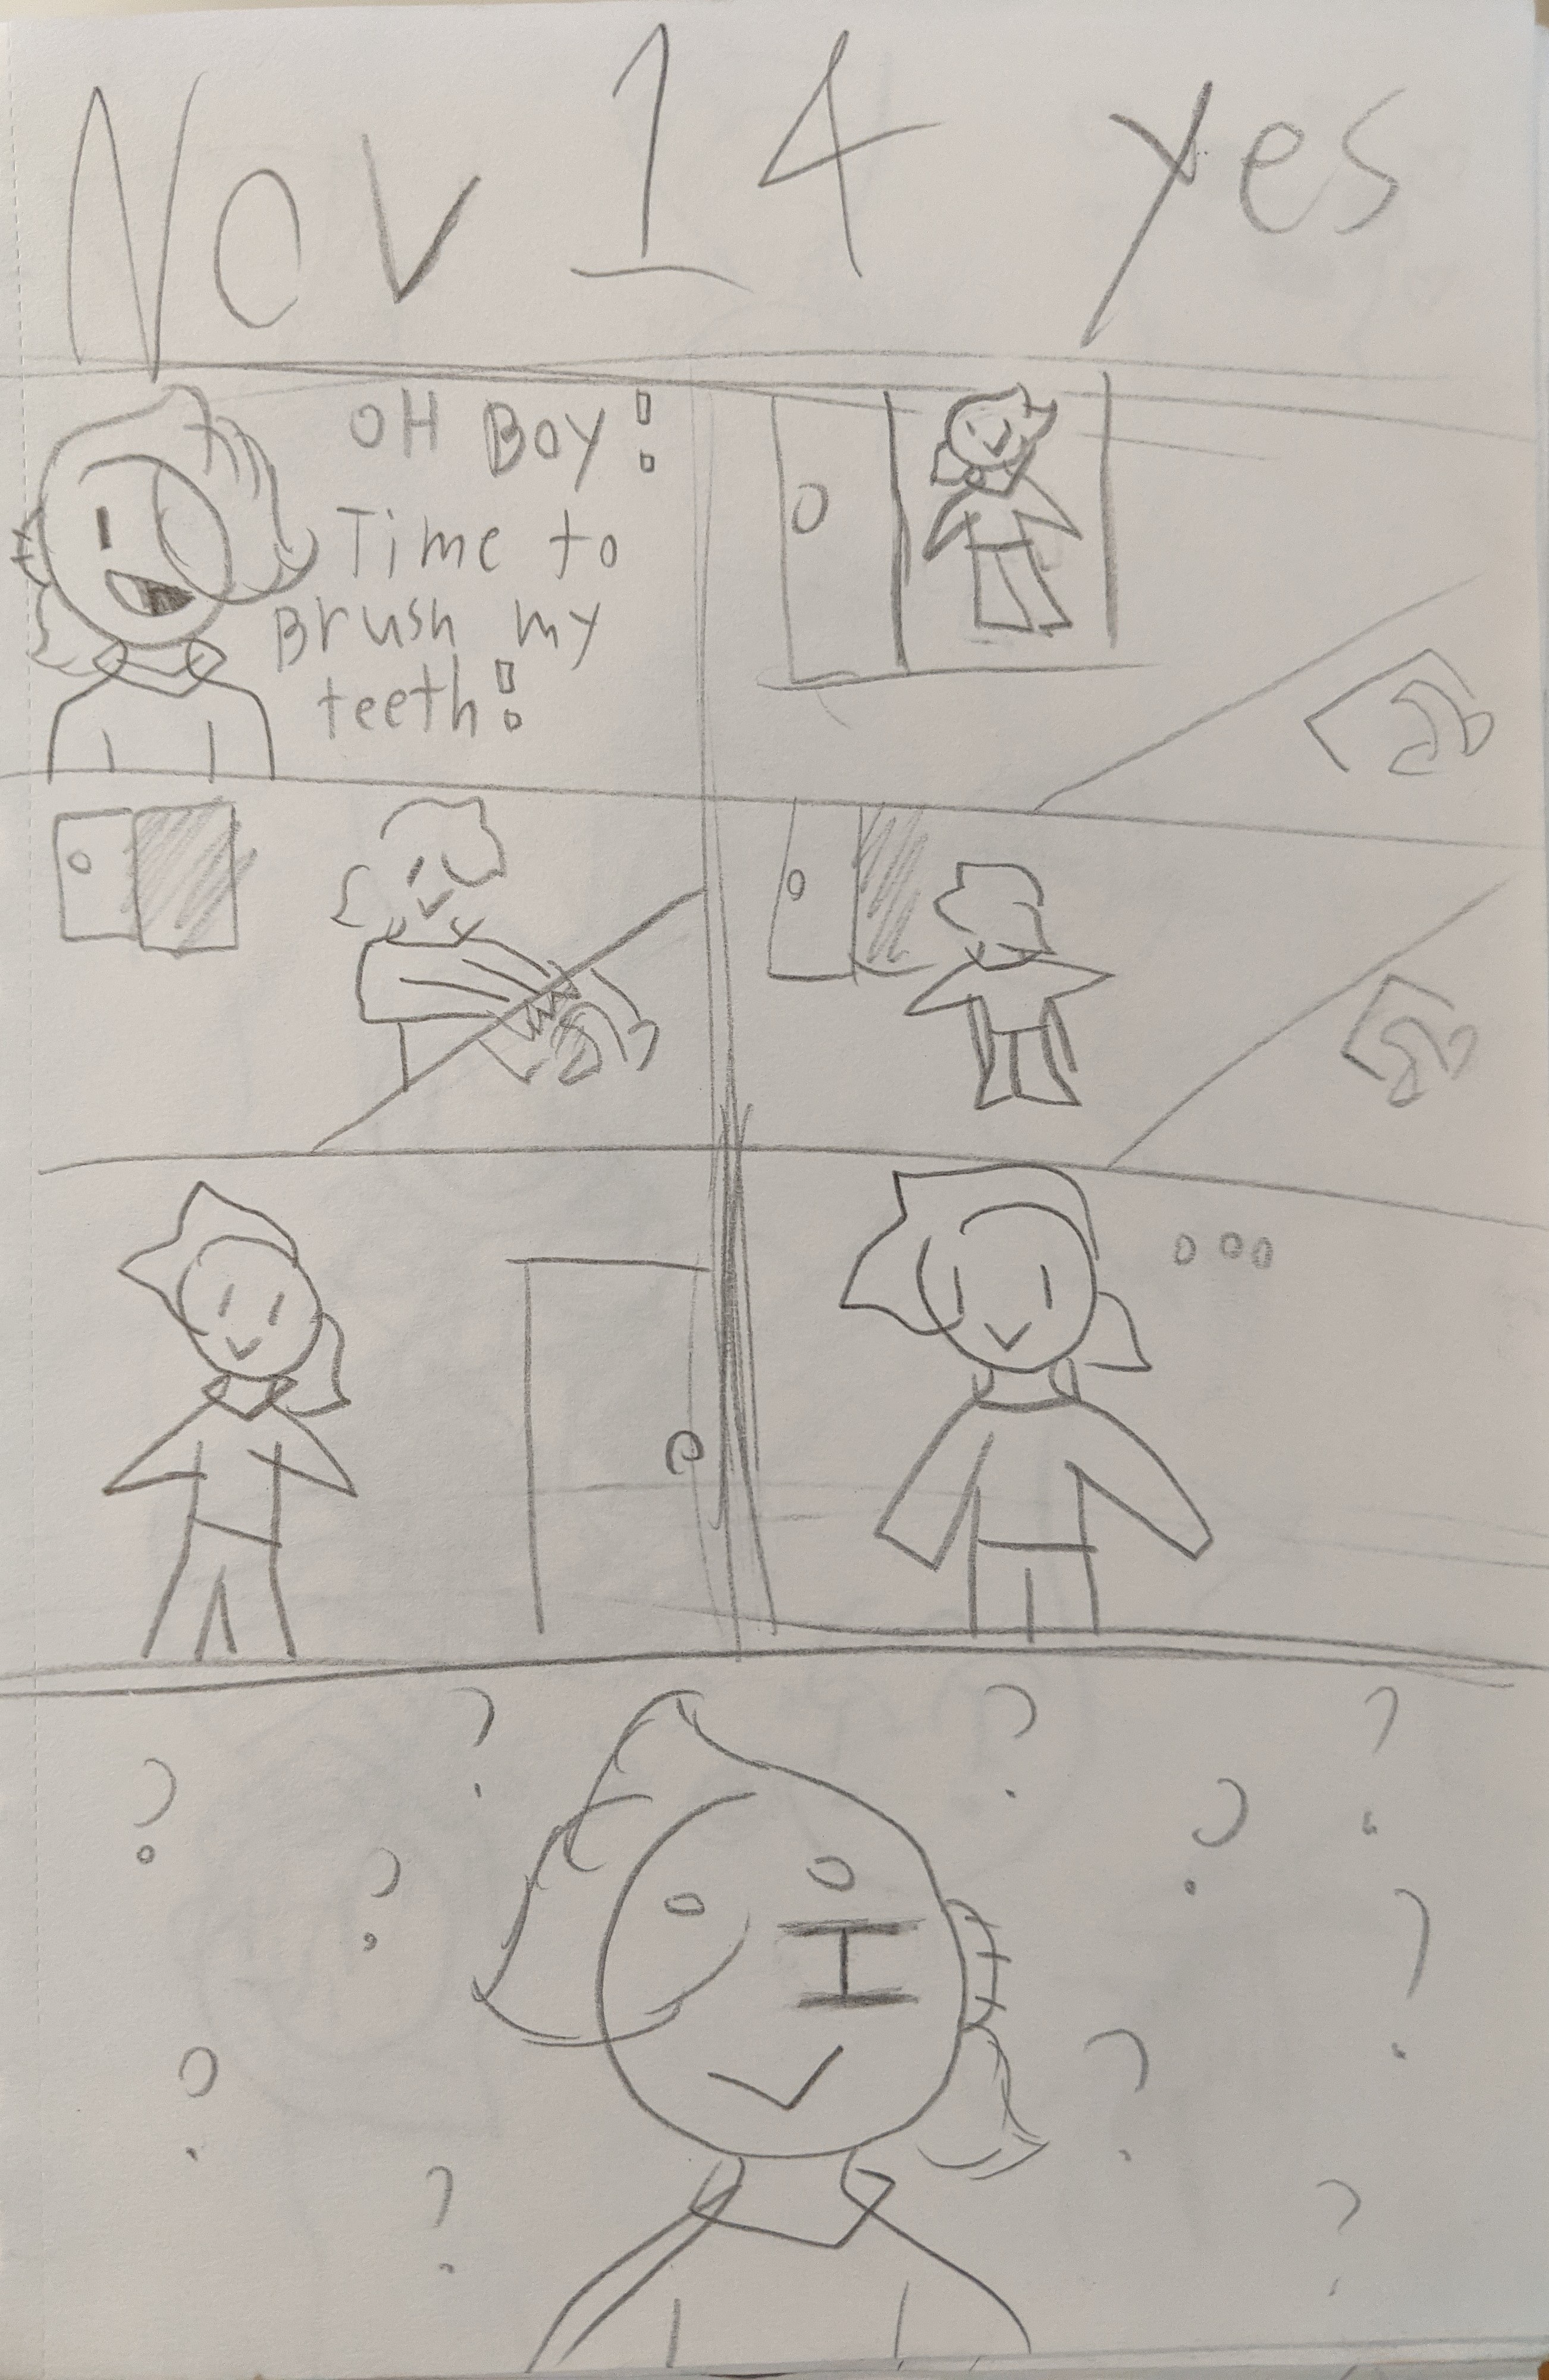 Nov 14 yes
OH Boy!
Time to
Brush my
teeth!
...
? ? ? ? ? ? ? ? ? ? ? ?